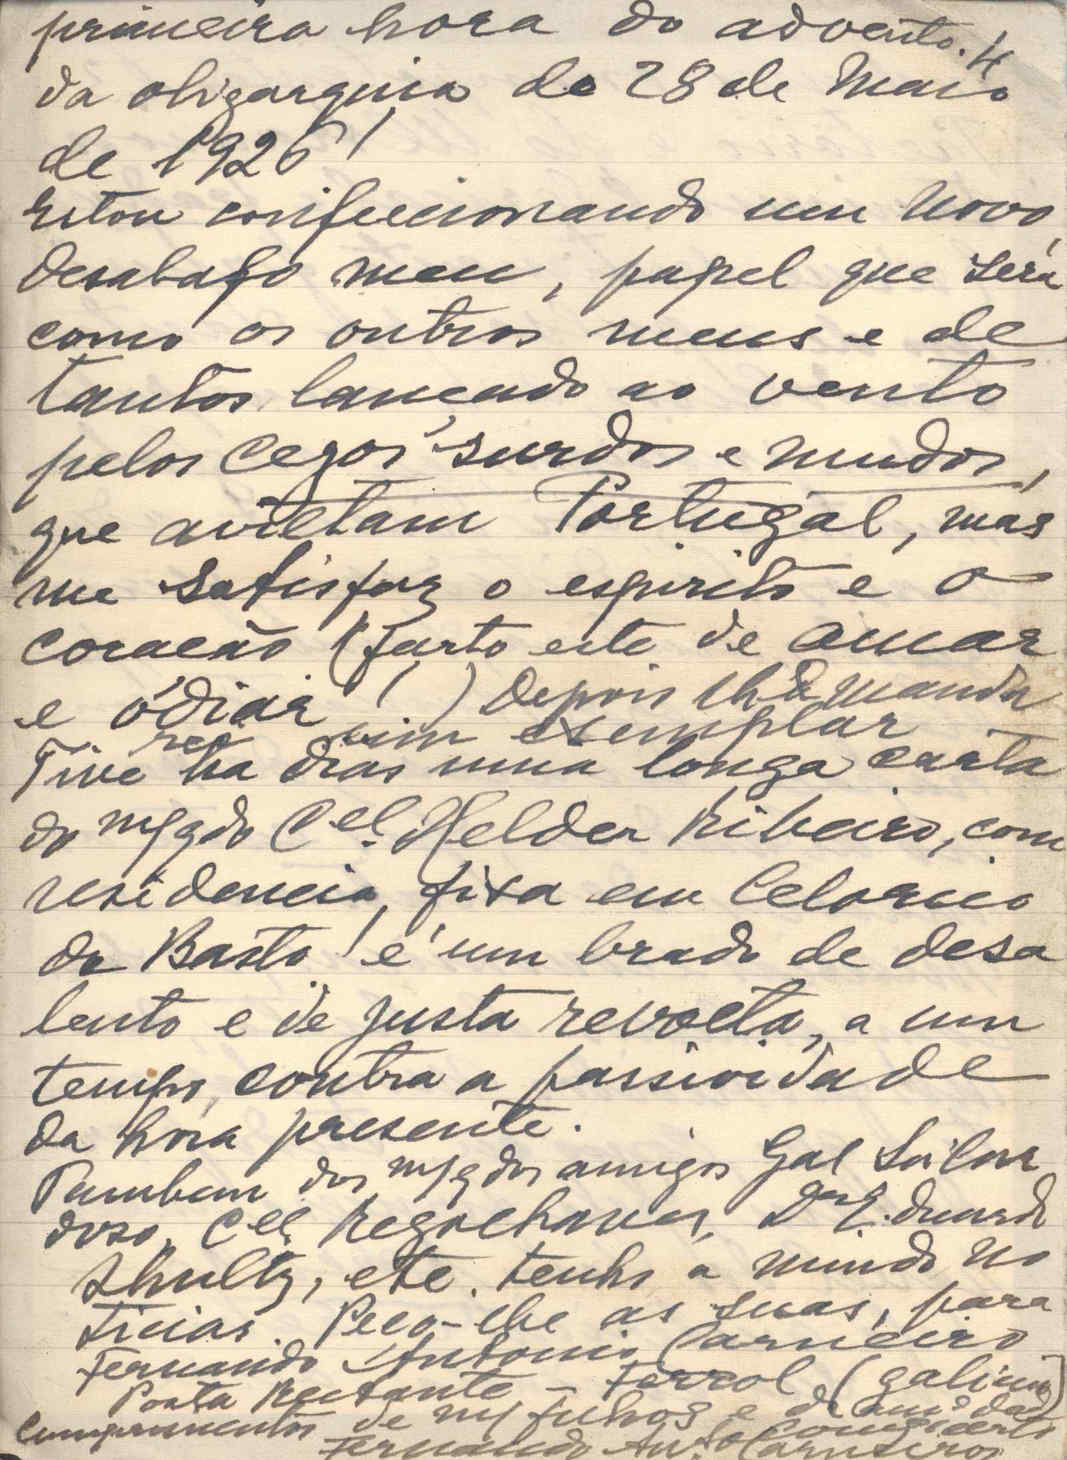 primeira hora do advento. 4
da oligarquia de 28 de Maio
de 1926!
Estou confeccionando um novo
desabafo meu, papel que será
como os outros meus e de
tantos, lançado ao vento
pelos cegos, surdos e mudos,
que aviltam Portugal, mas
me satisfaz o espirito e o
coração (farto este de amar
e ódiar!) depois lhe manda
rei um exemplar
Tive ha dias uma longa carta
do m/qdo Cel. Helder Ribeiro, com
residencia fixa em Celorico
de Basto! é um brado de desa
lento e de justa revolta, a um
tempo, contra a passividade
da hora presente.
Tambem dos m/qdos amigos Gal
doso, Cel. Rego Chaves, Eduardo
Shultz, etc. tenho a miudo no
ticias. Peço-lhe as suas, para
Fernando Antonio Carneiro
Posta Restante - Ferrol (Galiza)
Cumprimentos de m/ filhos e do
Fernando Anto Carneiro